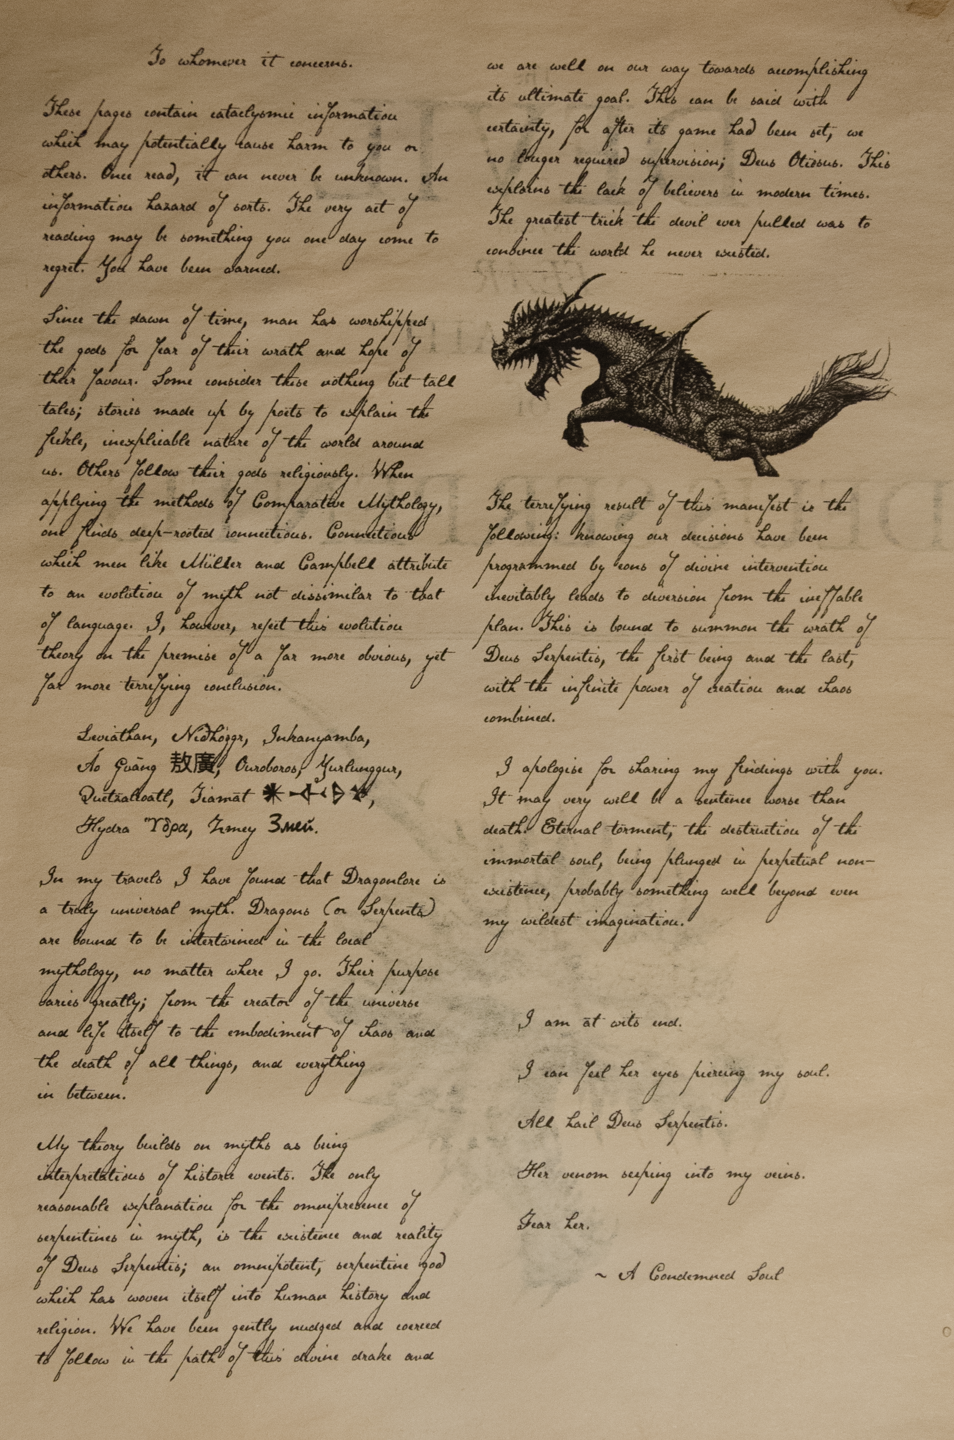 To whomever it concerns.
These pages contain cataclysmic information
which may potentially cause harm to you or
others. Once read, it can never be unknown. An
information hazard of sorts. The very act of
reading may be something you one day come to
regret. You have been warned.
Since the dawn of time, man has worshipped
the gods for fear of their wrath and hope of
their favour. Some consider these nothing but tall
tales; stories made up by poets to explain the
fickle, inexplicable nature of the world around
us. Others follow their gods religiously. When
applying the methods of Comparative Mythology,
one finds deep-rooted connections. Connections
which men like Müller and Campbell attribute
to an evolution of myth not dissimilar to that
of language. I, however, reject this evolution
theory on the premise of a far more obvious, yet
far more terrifying conclusion.
Leviathan, Niðhöggr, Inkanyamba,
Áo Guǎng 敖廣, Ouroboros, Yurlunggur,
Quetzalcoatl, Tiamat
Hydra Ὕδρα, Zmey Змей.
In my travels I have found that Dragonlore is
a truly universal myth. Dragons (or Serpents)
are bound to be intertwined in the local
mythology, no matter where I go. Their purpose
varies greatly; from the creator of the universe
and life itself to the embodiment of chaos and
the death of all things, and everything
in between.
My theory builds on myths as being
interpretations of historic events. The only
reasonable explanation for the omnipresence of
serpentines in myth, is the existence and reality
of Deus Serpentis; an omnipotent, serpentine god
which has woven itself into human history and
religion. We have been gently nudged and coerced
to follow in the path of this divine drake and
we are well on our way towards accomplishing
its ultimate goal. This can be said with
certainty, for after its game had been set, we
no longer required supervision; Deus Otiosus. This
explains the lack of believers in modern times.
The greatest trick the devil ever pulled was to
convince the world he never existed.
The terrifying result of this manifest is the
following: knowing our decisions have been
programmed by eons of divine intervention
inevitably leads to diversion from the ineffable
plan. This is bound to summon the wrath of
Deus Serpentis, the first being and the last,
with the infinite power of creation and chaos
combined.
I apologise for sharing my findings with you.
It may very well be a sentence worse than
death. Eternal torment, the destruction of the
immortal soul, being plunged in perpetual non-
existence, probably something well beyond even
my wildest imagination.
I am at wits end.
I can feel her eyes piercing my soul.
All hail Deus Serpentis.
Her venom seeping into my veins.
Fear her.
~ A Condemned Soul